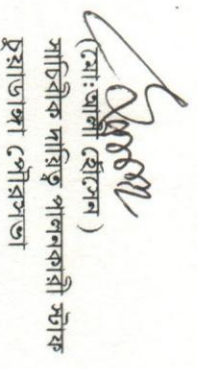 (মোঃ আলী হোসেন)
সাচিবিক দায়িত্ব পালনকারী স্টাফ
চুয়াডাঙ্গা পৌরসভা